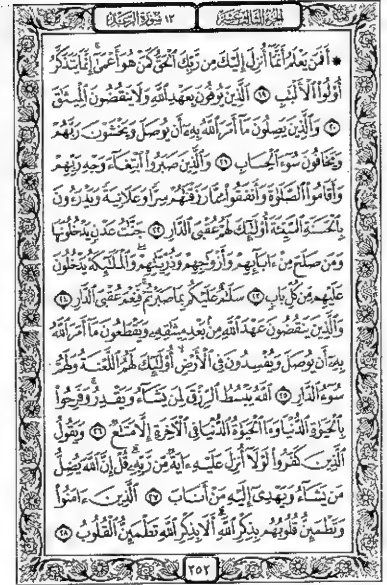 الجزء الثالث عشر
١٣ سورة الرعد
* أَفَمَن يَعْلَمُ أَنَّمَآ أُنزِلَ إِلَيْكَ مِن رَّبِّكَ ٱلْحَقُّ كَمَنْ هُوَ أَعْمَىٰٓ إِنَّمَا يَتَذَكَّرُ
أُو۟لُوا۟ ٱلْأَلْبَٰبِ ١٩ ٱلَّذِينَ يُوفُونَ بِعَهْدِ ٱللَّهِ وَلَا يَنقُضُونَ ٱلْمِيثَٰقَ
٢٠ وَٱلَّذِينَ يَصِلُونَ مَآ أَمَرَ ٱللَّهُ بِهِۦٓ أَن يُوصَلَ وَيَخْشَوْنَ رَبَّهُمْ
وَيَخَافُونَ سُوٓءَ ٱلْحِسَابِ ٢١ وَٱلَّذِينَ صَبَرُوا۟ ٱبْتِغَآءَ وَجْهِ رَبِّهِمْ
وَأَقَامُوا۟ ٱلصَّلَوٰةَ وَأَنفَقُوا۟ مِمَّا رَزَقْنَٰهُمْ سِرًّا وَعَلَانِيَةً وَيَدْرَءُونَ
بِٱلْحَسَنَةِ ٱلسَّيِّئَةَ أُو۟لَٰٓئِكَ لَهُمْ عُقْبَى ٱلدَّارِ ٢٢ جَنَّٰتُ عَدْنٍ يَدْخُلُونَهَا
وَمَن صَلَحَ مِنْ ءَابَآئِهِمْ وَأَزْوَٰجِهِمْ وَذُرِّيَّٰتِهِمْ وَٱلْمَلَٰٓئِكَةُ يَدْخُلُونَ
عَلَيْهِم مِّن كُلِّ بَابٍ ٢٣ سَلَٰمٌ عَلَيْكُم بِمَا صَبَرْتُمْ فَنِعْمَ عُقْبَى ٱلدَّارِ ٢٤
وَٱلَّذِينَ يَنقُضُونَ عَهْدَ ٱللَّهِ مِنۢ بَعْدِ مِيثَٰقِهِۦ وَيَقْطَعُونَ مَآ أَمَرَ ٱللَّهُ
بِهِۦٓ أَن يُوصَلَ وَيُفْسِدُونَ فِى ٱلْأَرْضِ أُو۟لَٰٓئِكَ لَهُمُ ٱللَّعْنَةُ وَلَهُمْ
سُوٓءُ ٱلدَّارِ ٢٥ ٱللَّهُ يَبْسُطُ ٱلرِّزْقَ لِمَن يَشَآءُ وَيَقْدِرُ وَفَرِحُوا۟
بِٱلْحَيَوٰةِ ٱلدُّنْيَا وَمَا ٱلْحَيَوٰةُ ٱلدُّنْيَا فِى ٱلْءَاخِرَةِ إِلَّا مَتَٰعٌ ٢٦ وَيَقُولُ
ٱلَّذِينَ كَفَرُوا۟ لَوْلَآ أُنزِلَ عَلَيْهِ ءَايَةٌ مِّن رَّبِّهِۦ قُلْ إِنَّ ٱللَّهَ يُضِلُّ
مَن يَشَآءُ وَيَهْدِىٓ إِلَيْهِ مَنْ أَنَابَ ٢٧ ٱلَّذِينَ ءَامَنُوا۟
وَتَطْمَئِنُّ قُلُوبُهُم بِذِكْرِ ٱللَّهِ أَلَا بِذِكْرِ ٱللَّهِ تَطْمَئِنُّ ٱلْقُلُوبُ ٢٨
٢٥٢